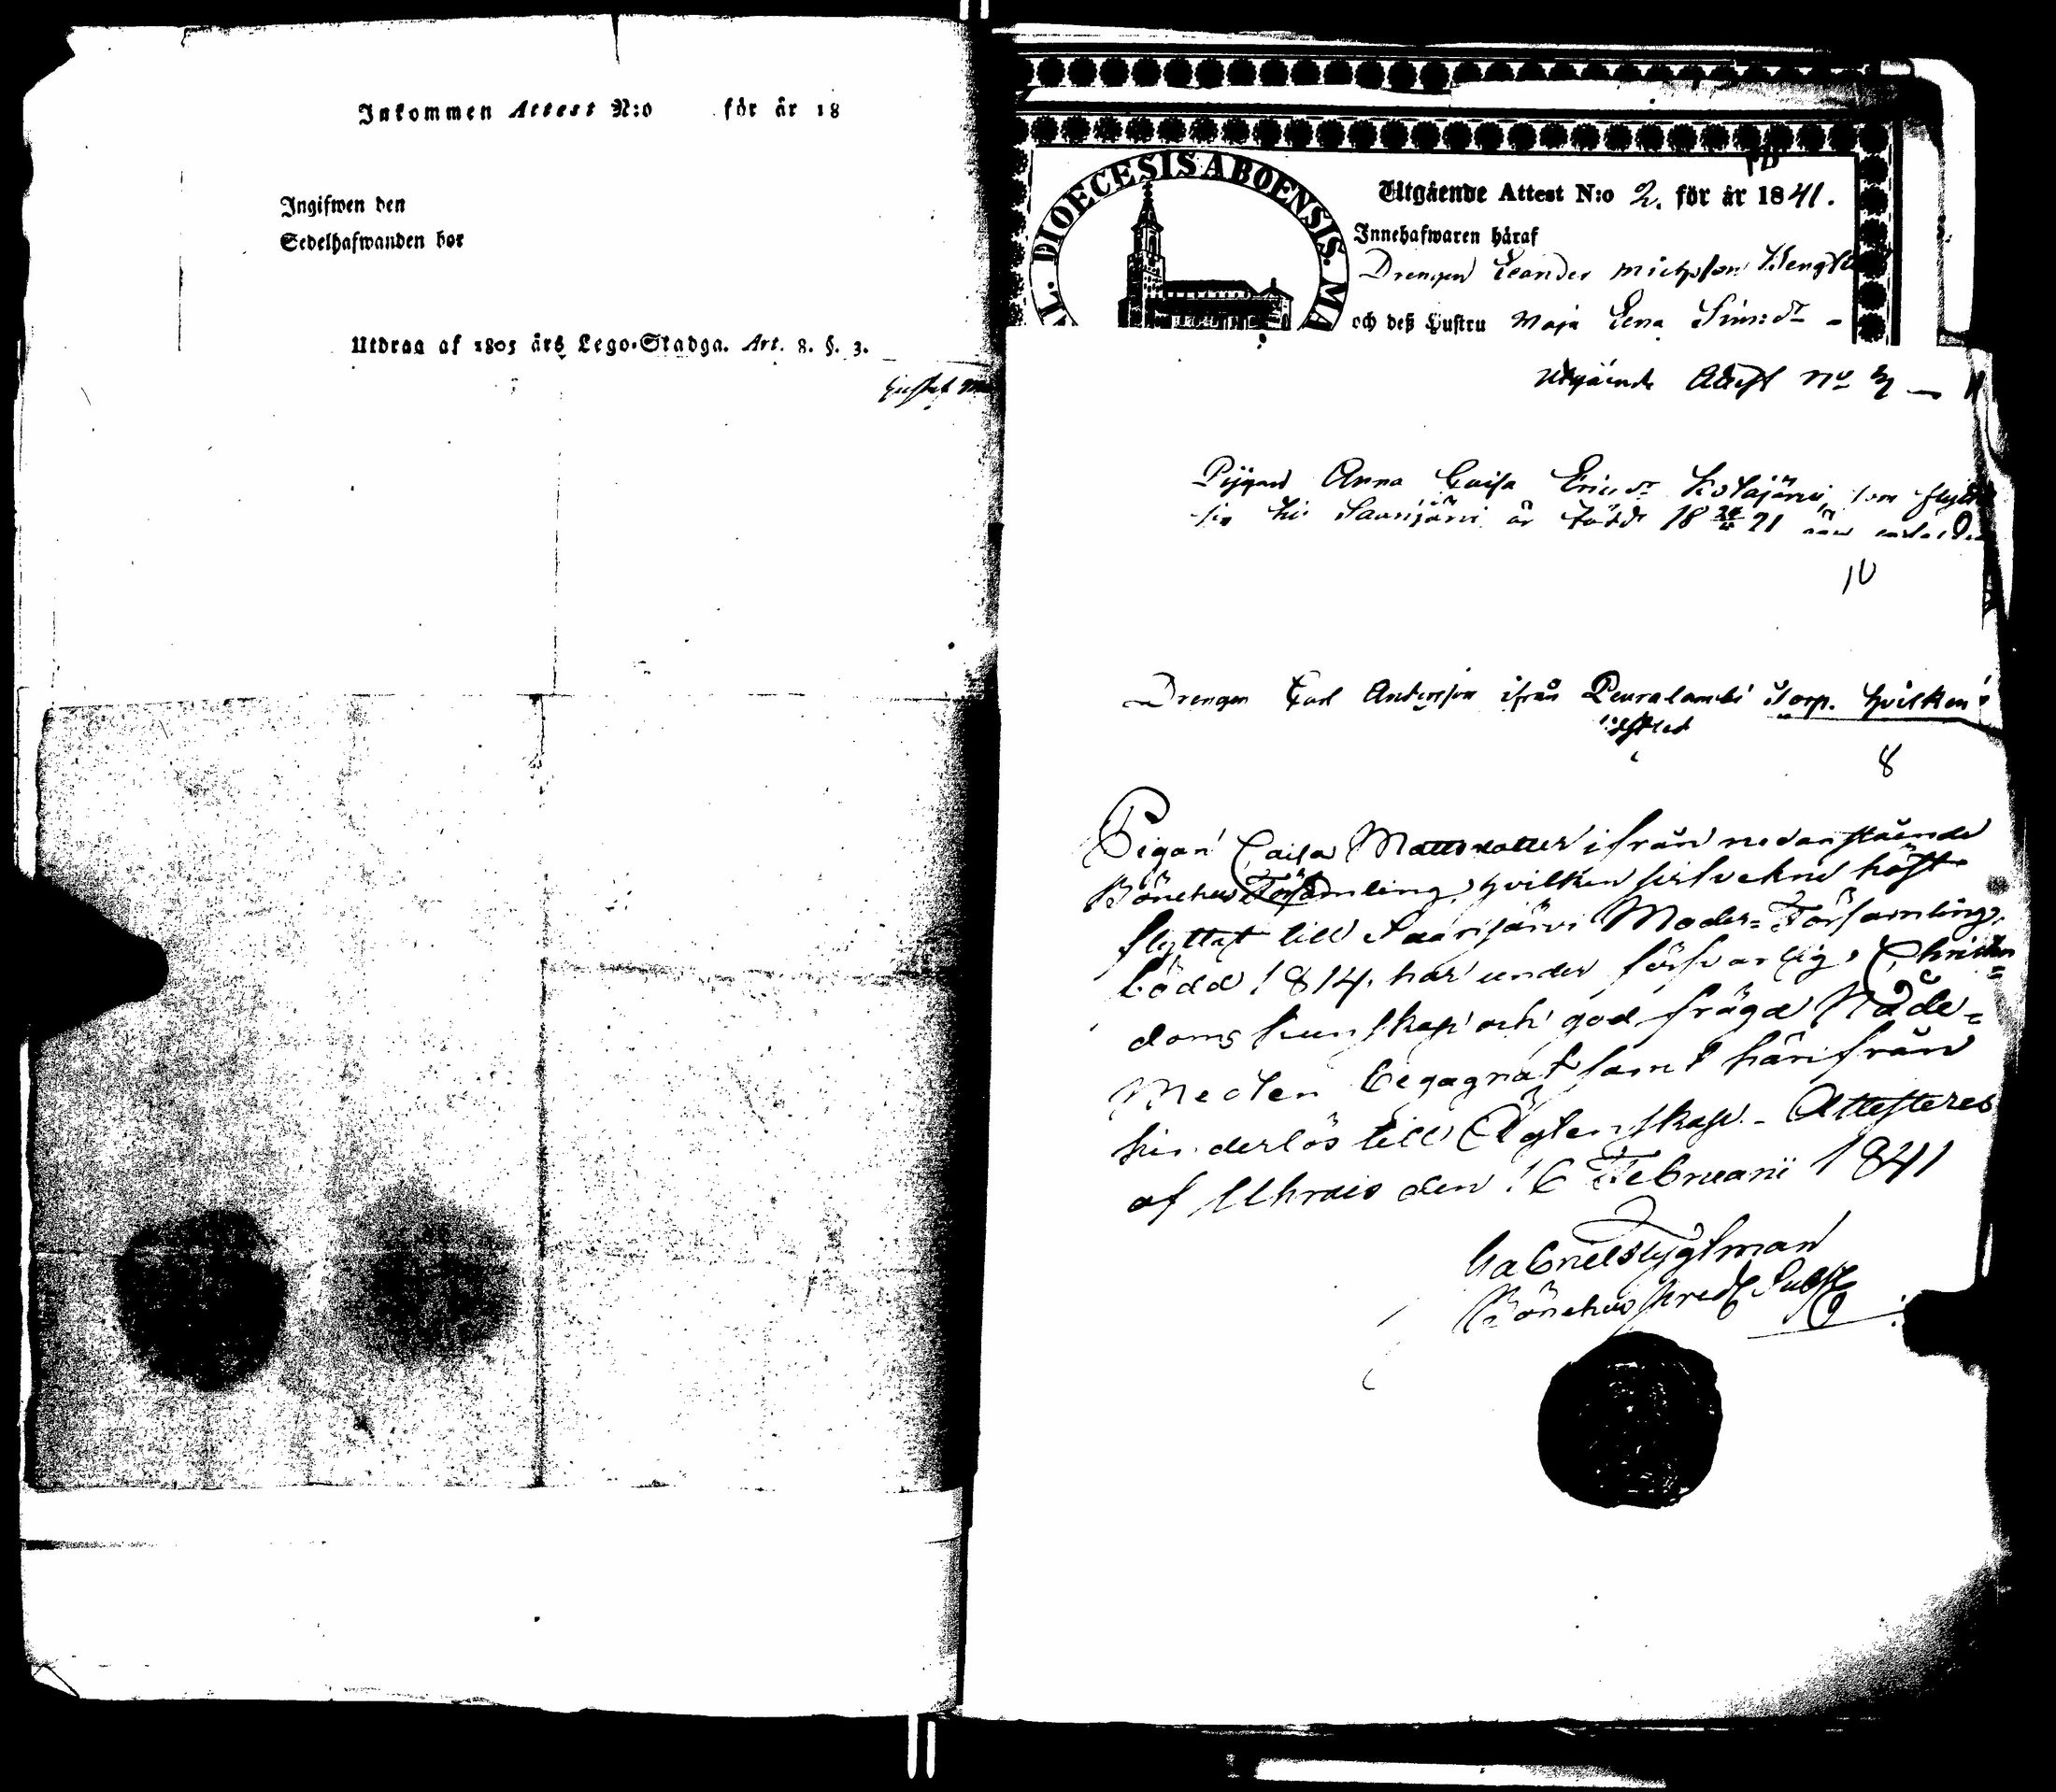 Inkommen Attest N:o för år 18
Ingifwen den
Sedelhafwanden bor
Utdrag af 1805 års Lego-Stadga. Art. 8. §. 3.
Gustaf
DIOECESIS ABOENSIS. MA
Utgående Attest N:o 2. för år 1841.
Innehafwaren häraf
Drengen Leander Michelsson
och deß Hustru Maja Lena Sim:dr
Utgående Attest No 3
Pigan Anna Caisa Ericsdr som
är född 18 21
10
Drengen Carl Andersson ifrån Peuralambi Torp. hvilken
8
Pigan Caisa Mattsdotter ifrån nedanstående
Bönehus Församling, hvilken sistvekne höst
flyttat till Saarijärvi Moder=Församling,
född 1814, har under försvarlig Christen=
doms kunskap och god frägd Nåde=
Medlen begagnat samt härifrån
hinderlös till Ägtenskap. Attesteres
af Uhrais den 16 Februarii 1841
Gabriel Lygtman
Bönehus Pred. Subst